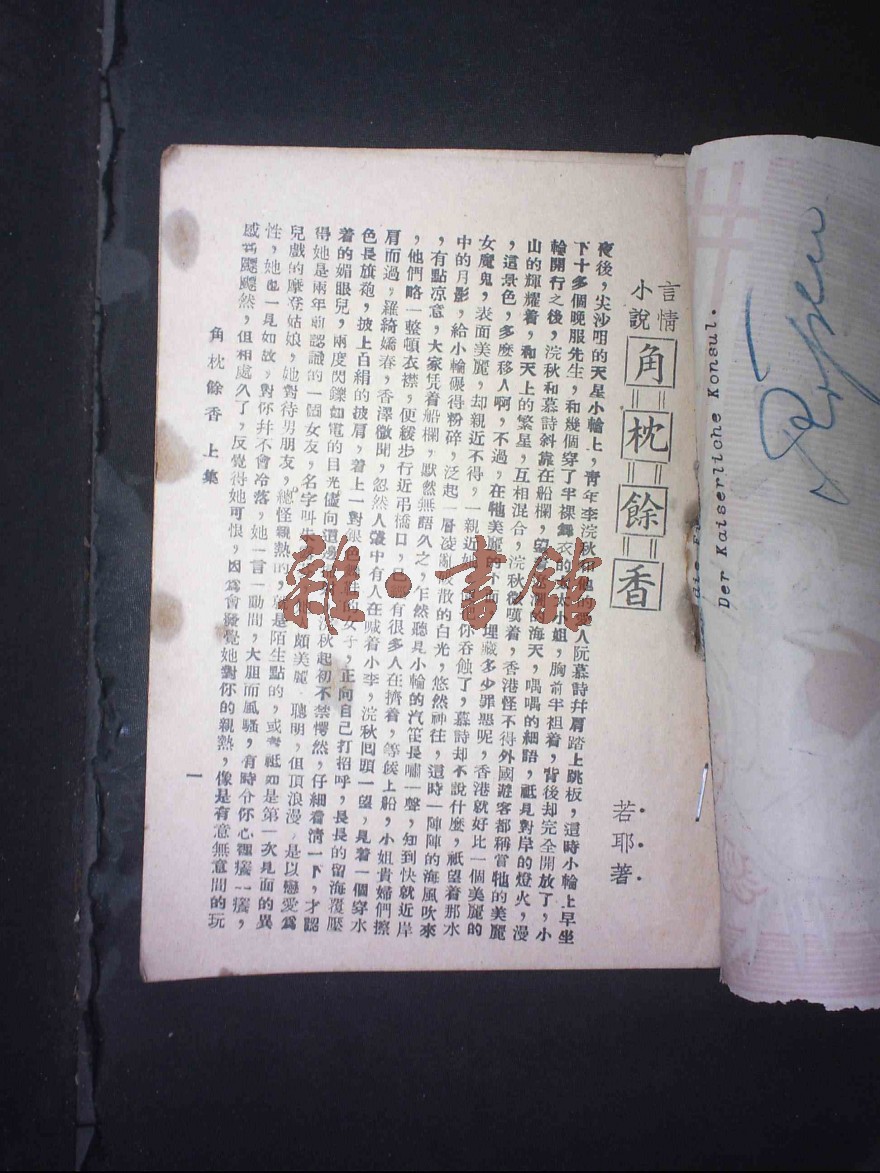 言情
小說
角枕餘香
若耶著
夜後，尖沙咀的天星小輪上，靑年李浣秋和他的
人阮慕詩幷肩踏上跳板，這時小輪上早坐
下十多個晚服先生，和幾個穿了半裸舞衣的
小姐，胸前半袒着，背後却完全開放了，小
輪開行之後，浣秋和慕詩斜靠在船欄，望着
的海天，喁喁的細語，祗見對岸的燈火，漫
山的輝耀着，和天上的繁星，互相混合，浣秋微嘆着，香港怪不得外國遊客都稱賞牠的美麗
，這景色，多麼移人啊，不過，在牠美麗的下面，埋藏多少罪惡呢，香港就好比一個美麗的
女魔鬼，表面美麗，却親近不得，一親近
你吞蝕了，慕詩却不說什麼，祗望着那水
中的月影，給小輪碾得粉碎，泛起一層凌亂
散的白光，悠然神往，這時一陣陣的海風吹來
，有點凉意，大家凭着船欄，默然無語久之，乍然聽見小輪的汽笛長嘯一聲，知到快就近岸
，他們略一整頓衣襟，便緩步行近吊橋口，已
有很多人在擠着，等候上船，小姐貴婦們擦
肩而過，羅綺嬌春，香澤微聞，忽然人叢中有人在喊着小李，浣秋回頭一望，見着一個穿水
色長旗袍，披上白絹的披肩，着上一對銀色
女子，正向自己打招呼，長長的留海覆壓
着的媚眼兒，兩度閃鑠如電的目光儘向這邊
浣秋起初不禁愕然，仔細看淸一下，才認
得她是兩年前認識的一個女友，名字叫朱
頗美麗，聰明，但頂浪漫，是以戀愛爲
兒戲的摩登姑娘，她對待男朋友，總怪親熱的，就是陌生點的，或者祗如是第一次見面的異
性，她也一見如故，對你幷不會冷落，她一言一動間，大胆而風騷，有時令你心裡癢一癢，
感到飃飃然，但相處久了，反覺得她可恨，因爲會發覺她對你的親熱，像是有意無意間的玩
角枕餘香 上集
一
雜·書館
Der Kaiserliche Konsul.